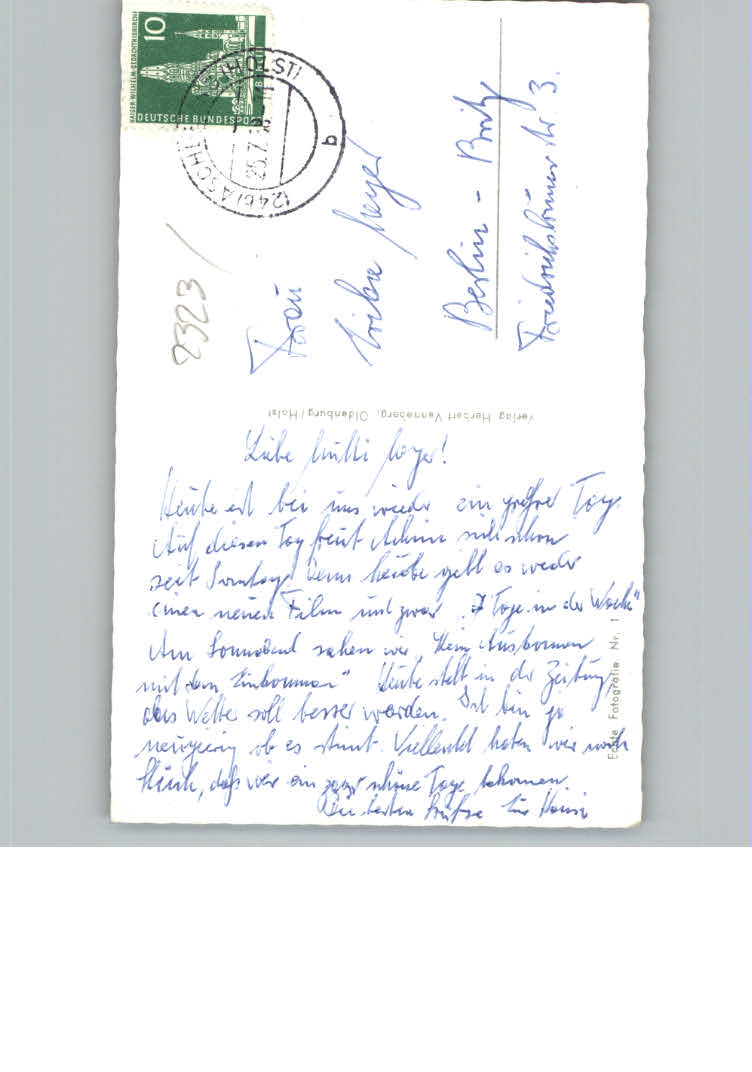 10
KAISER-WILHELM-GEDÄCHTNISKIRCHE
DEUTSCHE BUNDESPOST
(24b) ASCH (HOLST)
25.7.
b
2323
Frau
Meyer
Berlin - Britz
Friedrichsbrunner Str. 3.
Verlag Herbert Venneberg, Oldenburg/Holst
Echte Fotografie Nr. 1
Liebe Mutti Meyer!
Heute ist bei uns wieder ein großer Tag.
Auf diesen Tag freut Achim sich schon
seit Sonntag. Denn heute gibt es wieder
einen neuen Film und zwar „7 Tage in der Woche"
Am Sonnabend sahen wir „Kein Auskommen
mit dem Einkommen" Heute steht in der Zeitung
das Wetter soll besser werden. Ich bin ja
neugierig ob es stimmt. Vielleicht haben wir noch
Glück, daß wir ein paar schöne Tage bekommen.
Die besten Grüße